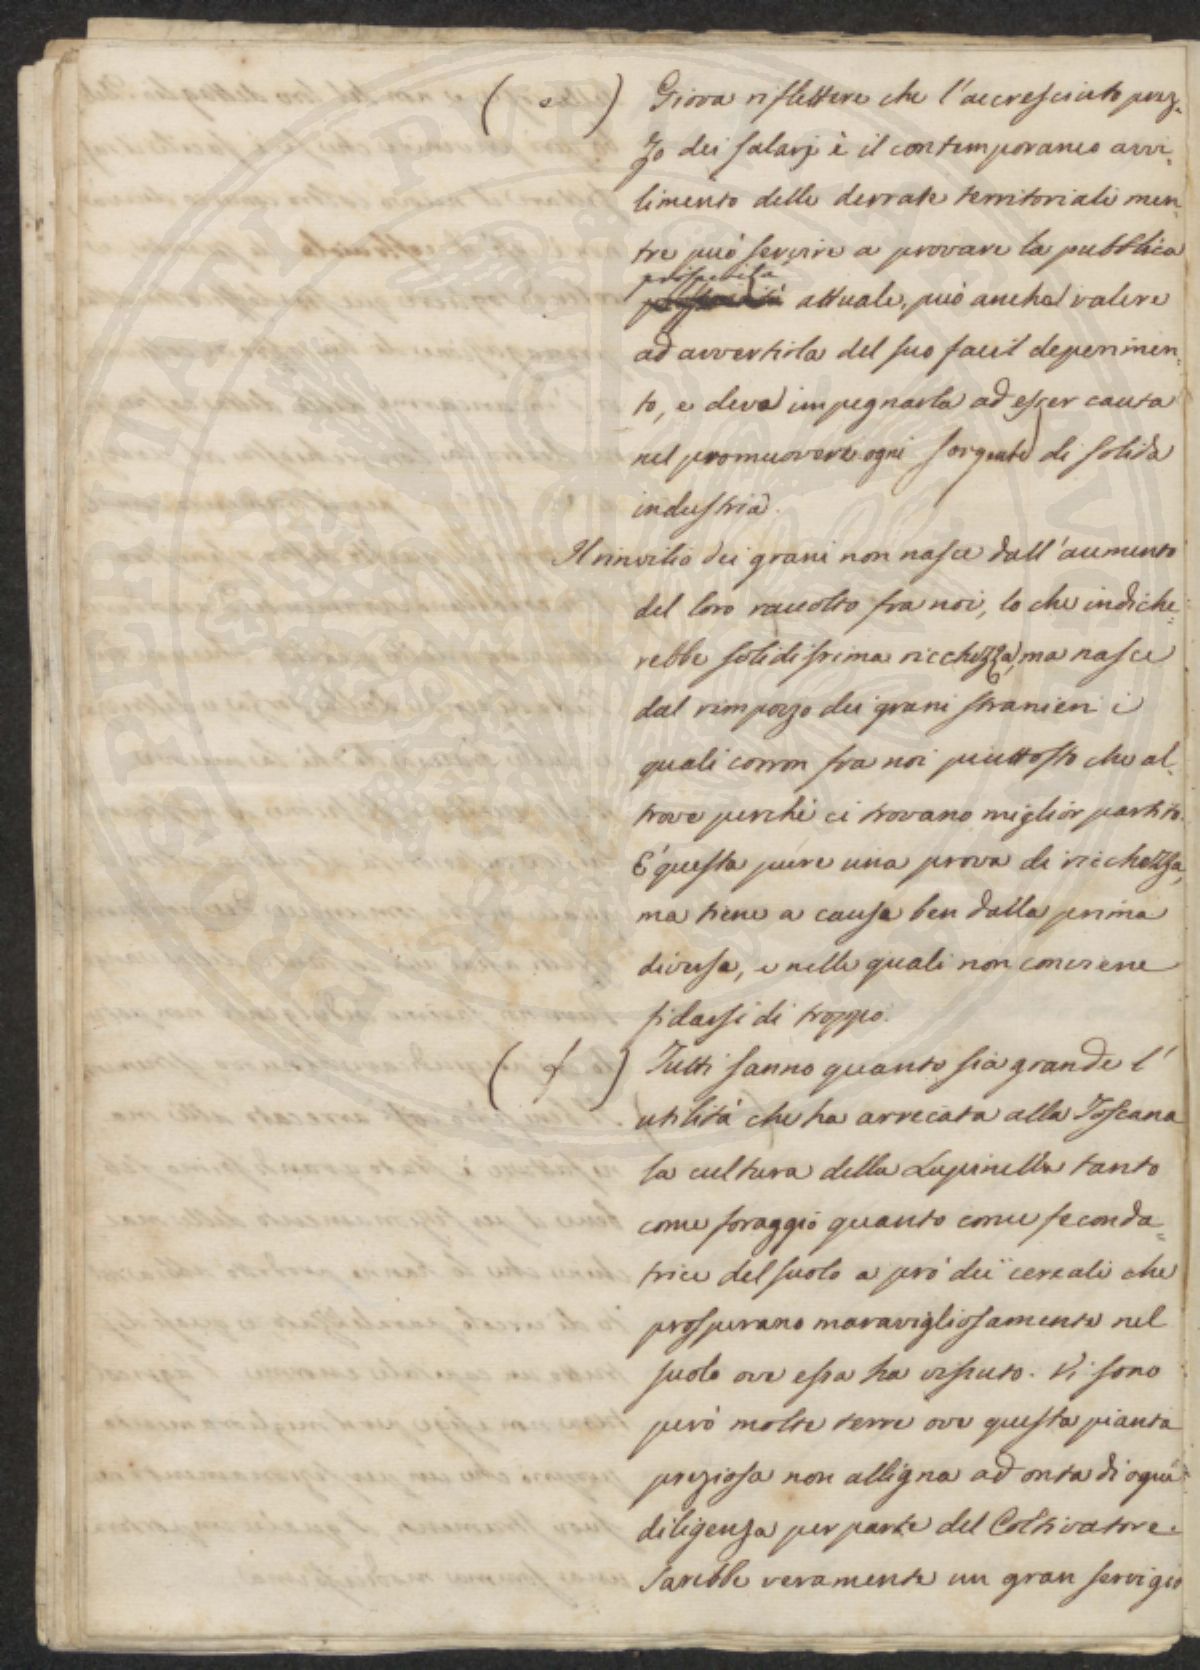 ( e ) Giova riflettere che l'accresciuto prez-
zo dei salarj e il contemporaneo avvi-
limento delle derrate territoriali men-
tre può servire a provare la pubblica
prosperità
attuale, può anche valere
ad avvertirla del suo facil deperimen-
to, e deve impegnarla ad esser cauta
nel promuovere ogni sorgente di solida
industria.
Il rinvilio dei grani non nasce dall'aumento
del loro raccolto fra noi, lo che indiche-
rebbe solidissima ricchezza, ma nasce
dal rimpozzo dei grani stranieri i
quali corron fra noi piuttosto che al-
trove perchè ci trovano miglior partito.
E' questa pure una prova di ricchezza,
ma tiene a cause ben dalla prima
diverse, e nelle quali non conviene
fidarsi di troppo.
( f ) Tutti sanno quanto sia grande l'
utilità che ha arrecata alla Toscana
la cultura della Lupinella tanto
come foraggio quanto come feconda=
trice del suolo a prò dei cereali che
prosperano maravigliosamente nel
suolo ove essa ha vissuto. Vi sono
però molte terre ove questa pianta
preziosa non alligna ad onta di ogni
diligenza per parte del Coltivatore.
Sarebbe veramente un gran servigio